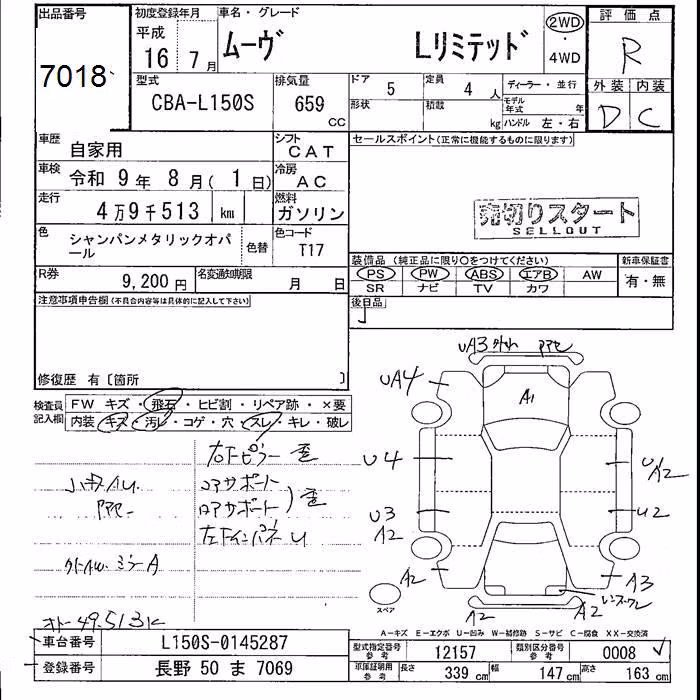 出品番号
7018
初度登録年月
平成
16年7月
車名・グレード
ムーヴ Lリミテッド
2WD
・
4WD
評価点
R
外装 内装
D C
型式
CBA-L150S
排気量
659
CC
ドア 5
形状
定員 4人
積載 kg
ディーラー・並行
モデル年式 年
ハンドル 左・右
車歴 自家用
シフト CAT
車検 令和 9年 8月(1日)
冷房 AC
走行 4万9千513 km
燃料 ガソリン
色 シャンパンメタリックオパール
色替
色コード T17
R券 9,200円
名変通知期限 月 日
セールスポイント(正常に機能するものに限ります)
売切りスタート
SELLOUT
装備品(純正品に限り○をつけてください)
PS PW ABS エアB AW
SR ナビ TV カワ
新車保証書
有・無
後日品
注意事項申告欄(不具合内容等は具体的に記入して下さい)
修復歴 有〔箇所 〕
検査員記入欄
FW キズ・飛石・ヒビ割・リペア跡・×要
内装 キズ・汚レ・コゲ・穴・スレ・キレ・破レ
右Fピラー 歪
コアサポート
ロアサポート
歪
左Fインパネ U
ミラーA
49,513K
UA3
UA4
A1
U4
U3
A2
A2
U2
A2
A3
A2
A2
スペア
A-キズ E-エクボ U-凹み W-補修跡 S-サビ C-腐食 XX-交換済
車台番号 L150S-0145287
登録番号 長野 50 ま 7069
型式指定番号 参考 12157
類別区分番号 参考 0008
車庫証明用 参考 長さ 339cm 幅 147cm 高さ 163cm